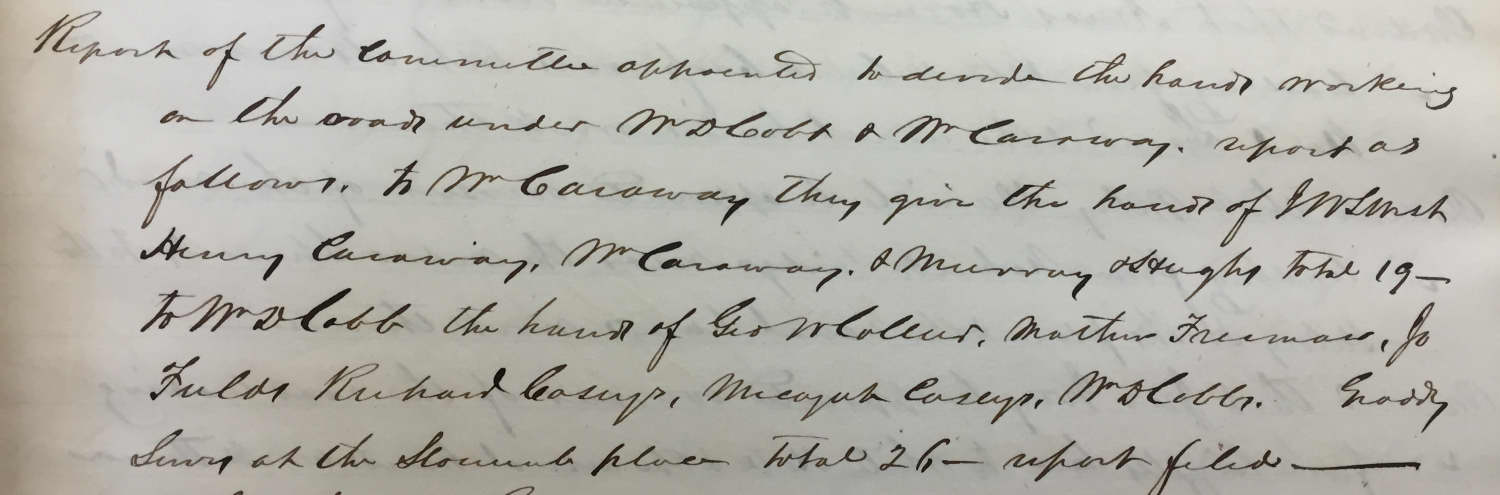 Report of the Committee appointed to devide the hands working
on the roads under Wm D Cobb & Wm Caraway. report as
follows. to Wm Caraway they give the hands of J W S West
Henry Caraway, Wm Caraway. & Murray & Hughs total 19—
to Wm D Cobb the hands of Geo W Collier, Mathew Freeman, Jo
Fields Richard Caseys, Micajah Caseys, Wm D Cobbs. Graddy
at the Slocumb place total 26— report filed —